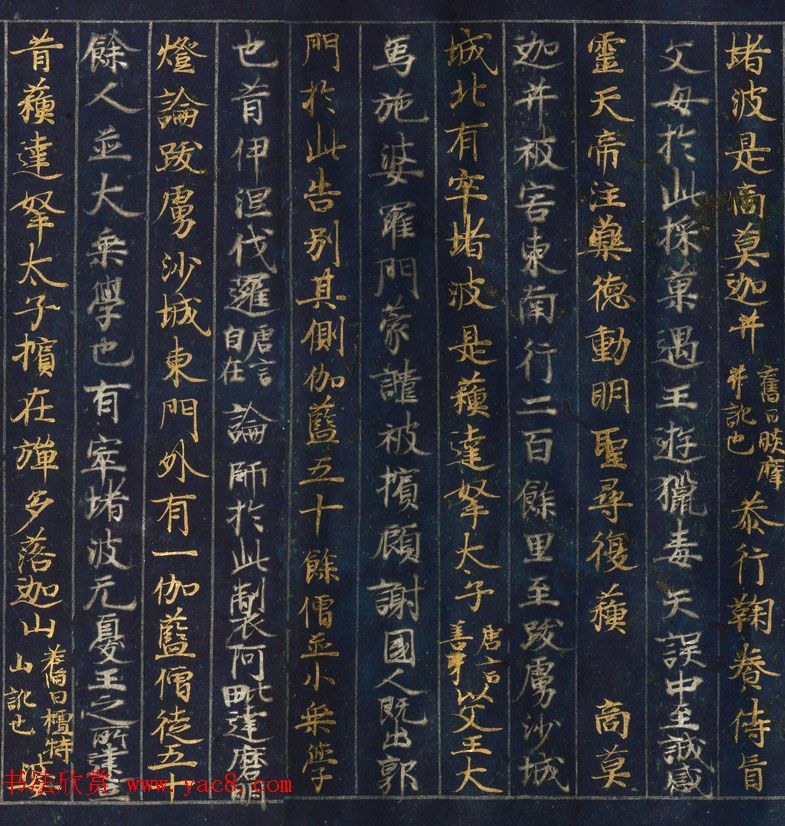 堵波是商莫迦𦬇舊曰睒摩𦬇訛也恭行鞠養侍盲
父母於此採菓遇王遊獵毒矢誤中至誠感
靈天帝注藥德動明聖尋復蘓　商莫
迦𦬇被害東南行二百餘里至跋虜沙城
城北有窣堵波是蘓達拏太子唐言善牙以父王大
馬施婆羅門蒙譴被擯顧謝國人既出郭
門於此告別其側伽藍五十餘僧並小乘學
也昔伊濕伐邏唐言自在論師於此製阿毗達磨明
燈論跋虜沙城東門外有一伽藍僧徒五十
餘人並大乘學也有窣堵波元憂王之所建
昔蘓達拏太子擯在彈多落迦山舊曰檀特山訛也
书法欣赏 www.yac8.com